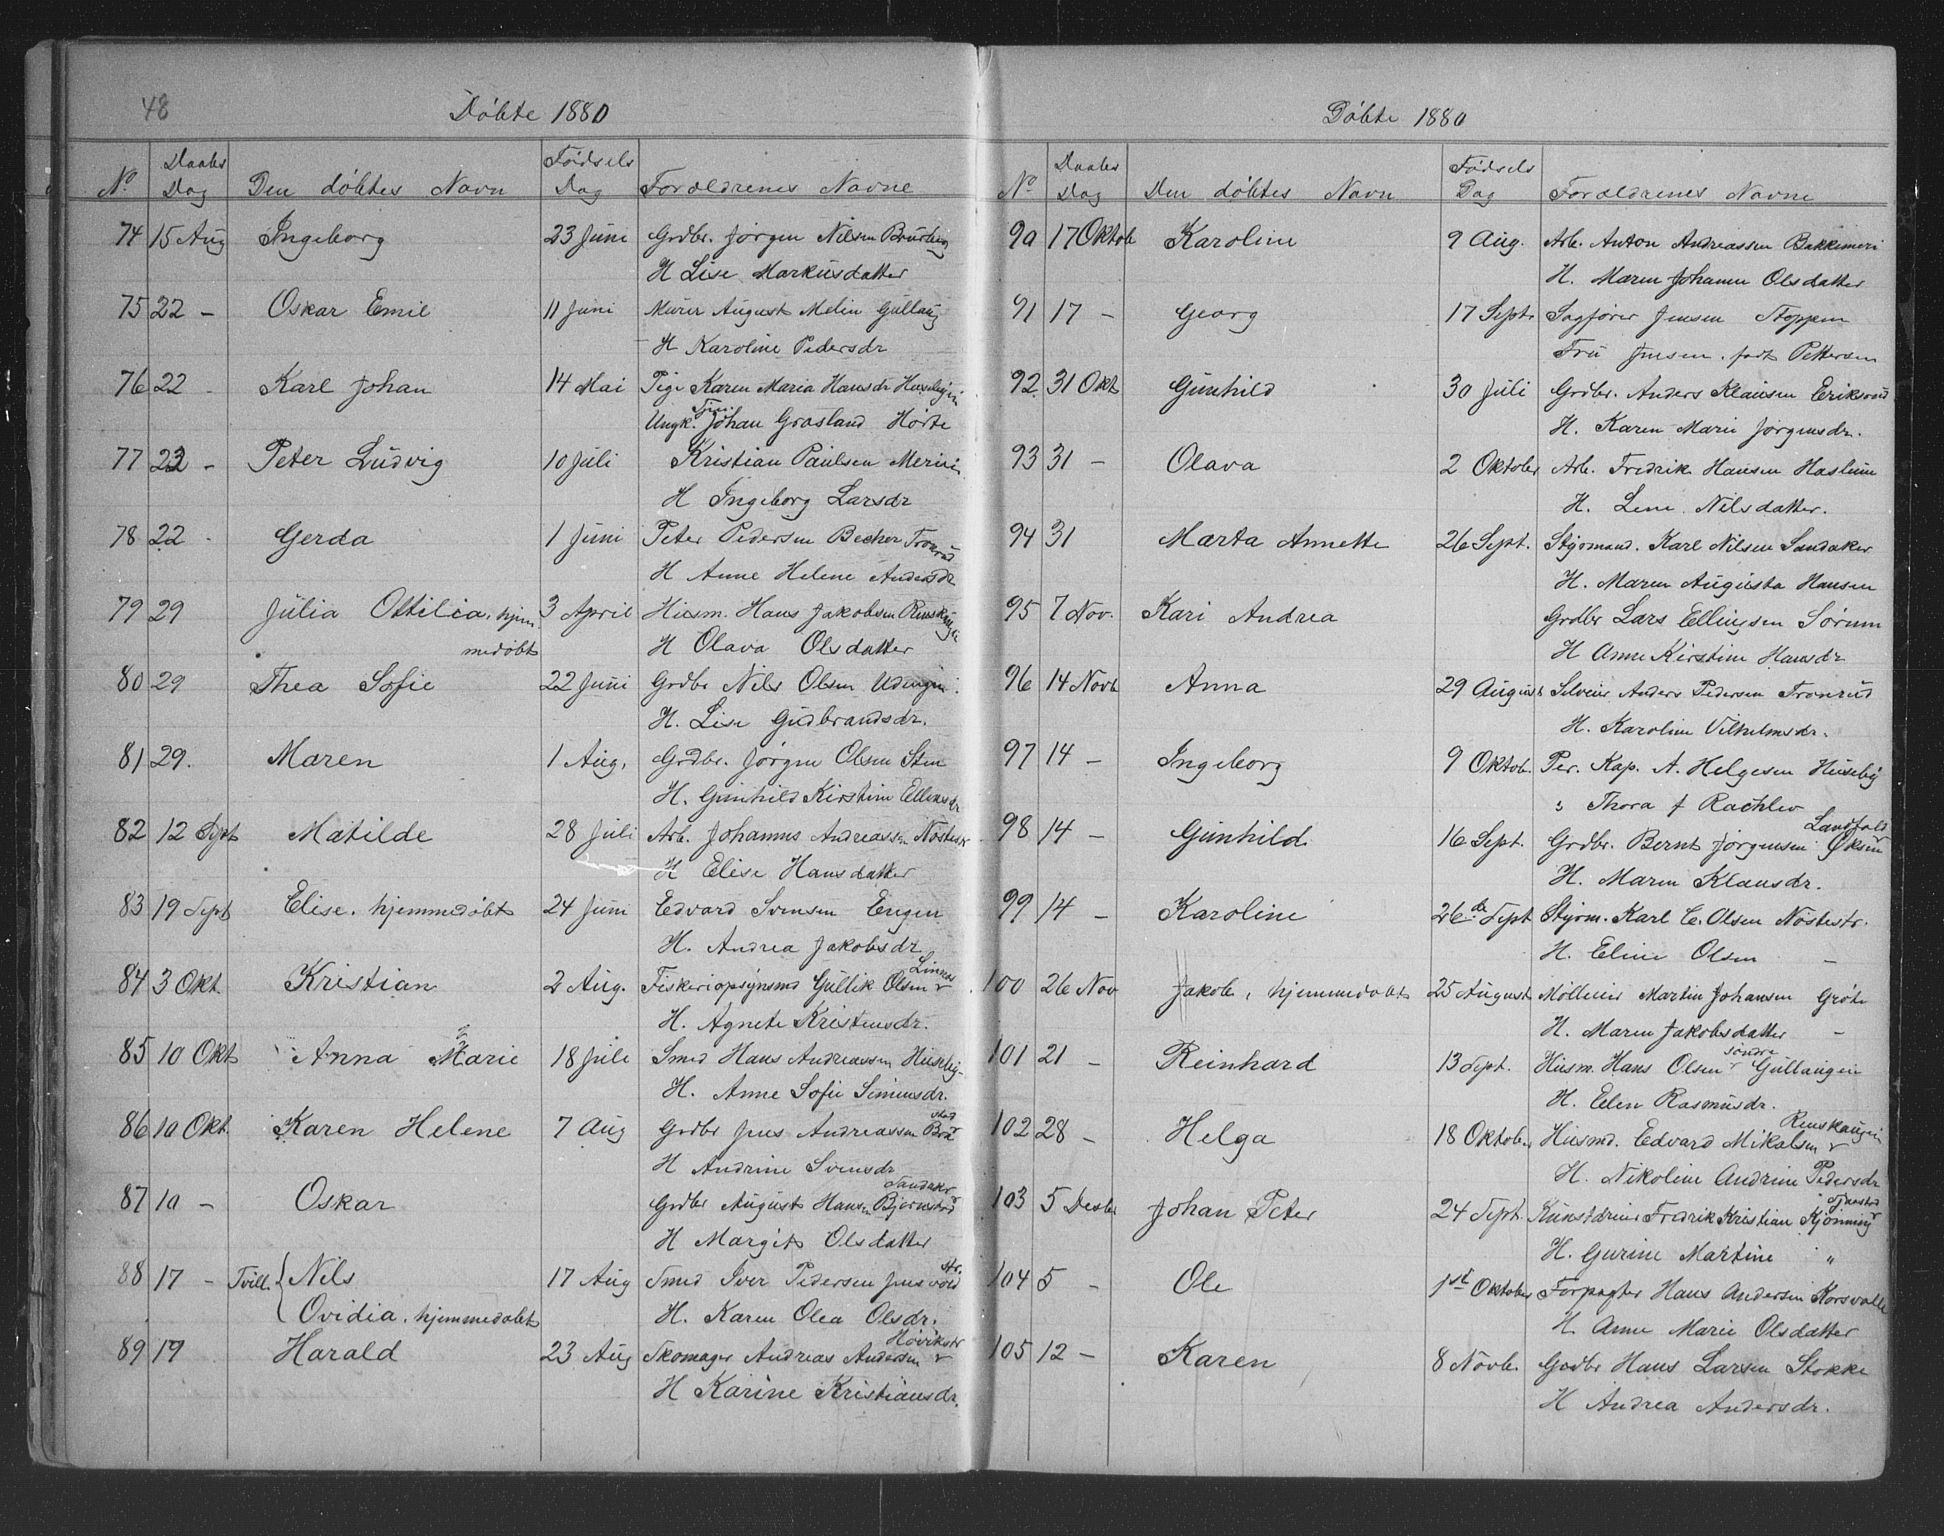 48
Döbte 1880
No Daabs Dag Den döbtes Navn Födsels Dag Foræeldrenes Navne
74 15 Aug Ingeborg 23 Juni Grdbr. Jörgen Nilsen
H Lise Markusdatter
75 22 - Oskar Emil 11 Juni Murer August Melin Gullaug
H Karoline Pedersdr
76 22 - Karl Johan 14 Mai Pige Karen Maria Hansdr
Ungk. Johan Grosland Hörte
77 22 - Peter Ludvig 10 Juli Kristian Paulsen
H Ingeborg Larsdr
78 22 - Gerda 1 Juni Peter Pedersen Becher Tronrud
H Anne Helene Andersdr
79 29 Julia Ottilia, hjem- 3 April Husm. Hans Jakobsen
medöbt H Olava Olsdatter
80 29 Thea Sofie 22 Juni Grdbr Nils Olsen
H. Lise Gudbrandsdr.
81 29. Maren 1 Aug. Grdbr. Jörgen Olsen Sten
H. Gunhild Kirstine
82 12 Sept Matilde 28 Juli Arb. Johannes Andreassen Nöstestr
H Elise Hansdatter
83 19 Sept Elise. hjemmedöbt 24 Juni Edvard Svensen Engen
H. Andrea Jakobsdr
84 3 Okt. Kristian 2 Aug. Fiskeriopsynsmd Gullik Olsen Linnes
H. Agnete Kristensdr.
85 10 Okt Anna Marie 18 Juli Smed Hans Andreassen Huseby
H. Anne Sofie Simensdr.
86 10 Okt. Karen Helene 7 Aug Grdbr Jens Andreassen
H Andrine Svensdr
87 10 - Oskar Grdbr August Hansen Bjørnstad Sandaker
H Margit Olsdatter
88 17 - Tvill. { Nils 17 Aug Smed Iver Pedersen Jensvold str.
Ovidia. hjemmedöbt H. Karen Olea Olsdr.
89 19 Harald 23 Aug Skomager Andreas Andersen Hövikstr
H Karine Kristiansdr.
Döbte 1880
No Daabs Dag Den döbtes Navn Födsels Dag Forældrenes Navne
90 17 Oktob Karoline 9 Aug. Arb. Anton Andreassen
H. Maren Johanne Olsdatter
91 17 - Georg 17 Sept. Sagförer Jensen Stoppen
Fru Jensen. födt Pettersen
92 31 Okt Gunhild 30 Juli Grdbr. Anders Klausen Eriksrud
H. Karen Marie Jörgensdr.
93 31 - Olava 2 Oktober Arb. Fredrik Hansen Haslum
H. Lene Nilsdatter.
94 31 Marta Annette 26 Sept. Styrmand. Karl Nilsen Sandaker
H. Maren Augusta Hansen
95 7 Nov. Kari Andrea Grdbr Lars Ellingsen Sörum
H Anne Kirstine Hansdr
96 14 Novb Anna 29 August Selveier Anders Pedersen Tronrud
H. Karoline Vilhelmsdr.
97 14 - Ingeborg 9 Oktob. Per. Kap. A. Helgesen Huseby
" Thora f Rachlev
98 14 - Gunhild 16 Sept. Grdbr. Bernt Jörgensen Landfald Öksne
H. Maren Klausdr.
99 14 - Karoline 26de Sept Styrm. Karl C. Olsen Nöstestr.
H. Eline Olsen -
100 26 Nov Jakob, hjemmedöbt 25 August Martin Johansen
H. Maren Jakobsdatter -
101 21 - Reinhard 13 Sept. Husm. Hans Olsen söndre Gullaugen
H. Elen Rasmusdr.
102 28 - Helga 18 Oktober Husmd. Edvard Mikalsen Renskaugen
H. Nikoline Andrine Pedersdr
103 5 Desbr Johan Peter 24 Sept. Kunstdreier Fredrik Kristian
H. Gurine Martine "
104 5 - Ole 1st Oktober Forpagter Hans Andersen Korsvolle
H. Anne Marie Olsdatter
105 12 - Karen 8 Novb. Grdbr Hans Larsen Stokke
H Andrea Andersdr.